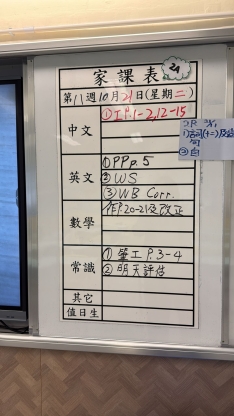 家課表
21
第11週10月21日(星期二)
中文
①工P.1-2,12-15
英文
①PP p.5
②WS
③WB Corr.
數學
作P.20-21及改正
常識
①肇工P.3-4
②明天評估
其它
值日生